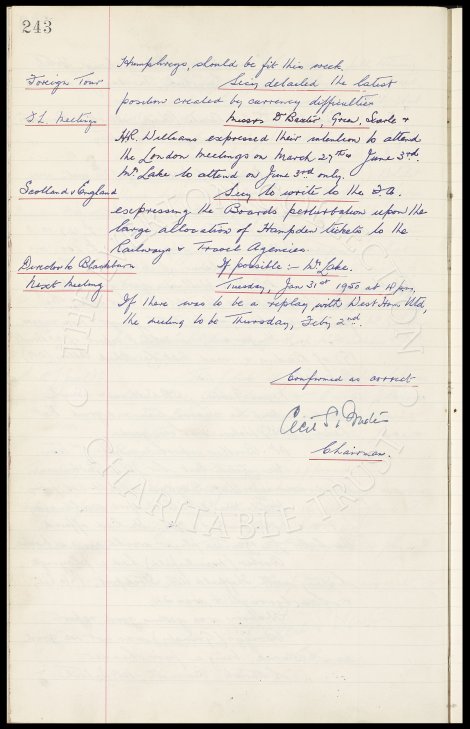 243
Humphreys, should be fit this week.
Foreign Tour Secy detailed the latest
position created by currency difficulties
F.L. Meetings Messrs D Baxter, Green, Searle &
H.R. Williams expressed their intention to attend
the London meetings on March 27th & June 3rd.
Mr Lake to attend on June 3rd only.
Scotland v England Secy to write to the F.A.
expressing the Boards perturbation upon the
large allocation of Hampden tickets to the
Railways & Travel Agencies.
Director to Blackburn If possible :- Mr Lake.
Next Meeting Tuesday, Jan 31st 1950 at 4 pm.
If there was to be a replay with West Ham Utd,
the meeting to be Thursday, Feby 2nd.
Confirmed as correct
Cecil S.
Chairman.
CHARITABLE TRUST